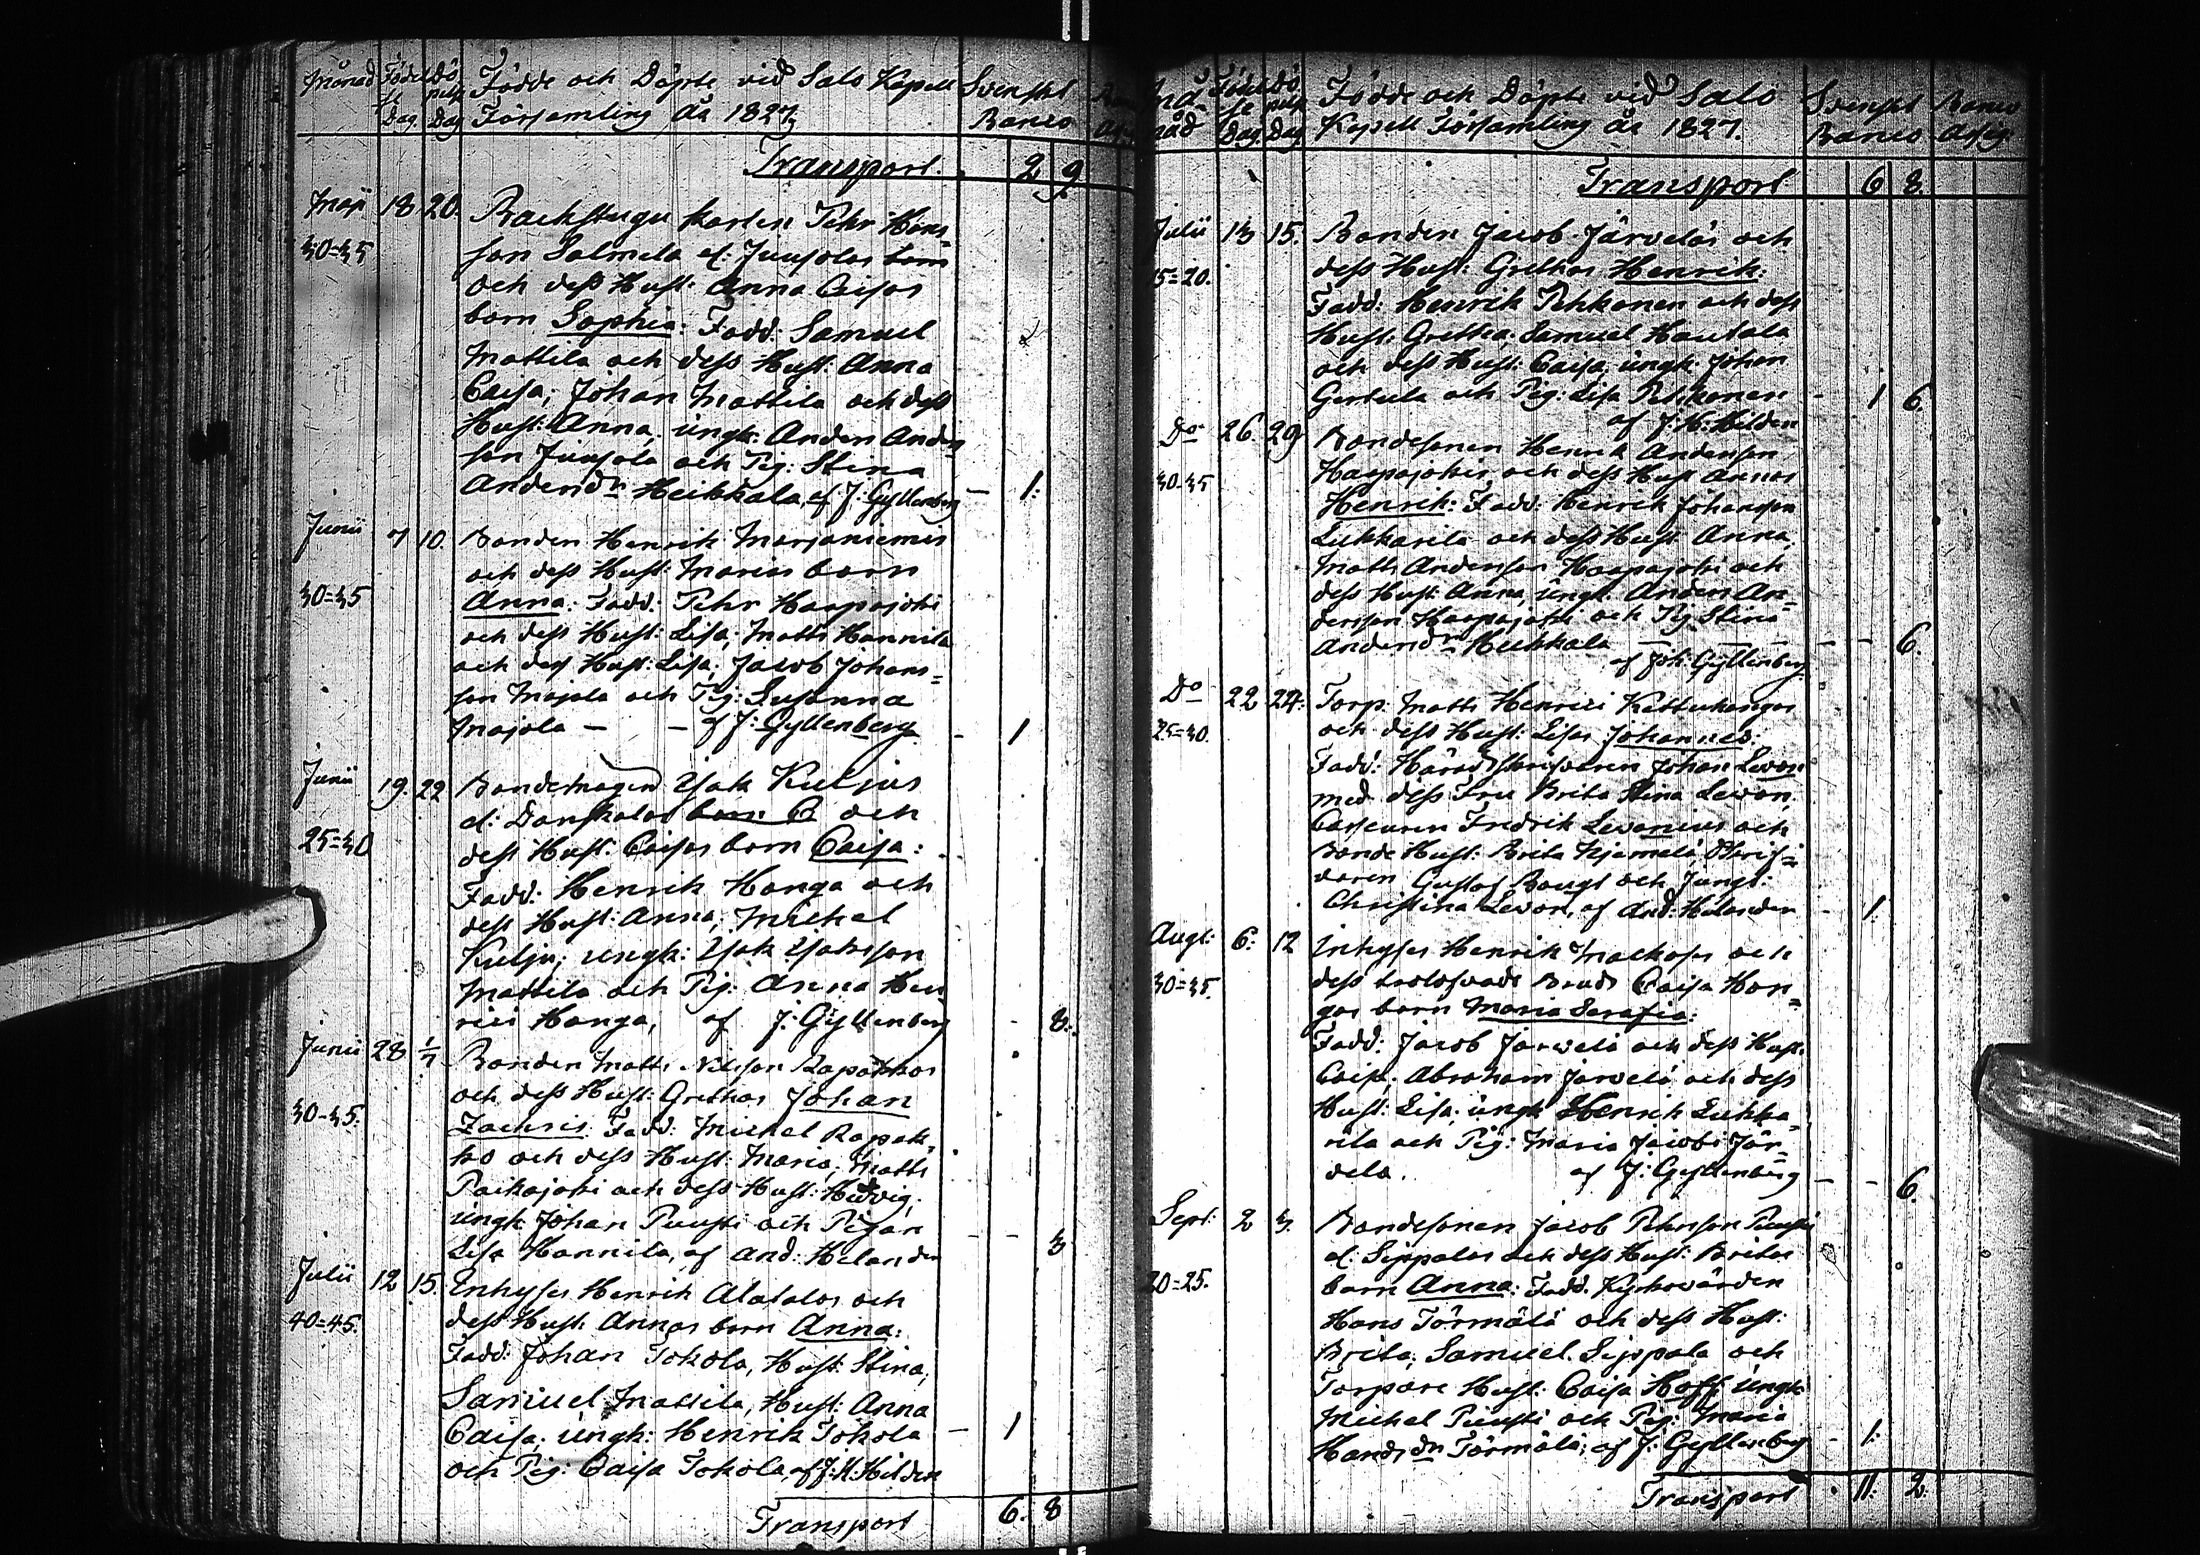 Månad Födel se Dag. Dö pelse Dag Födde och Döpte vid Salo Kapell Församling År 1827 Svenskt Banco
Transport 2 9
Maji 18 20. Backstugu karlen Pehr Hans=
30=35 son Salmela el: Juusolas barn
och dess Hust: Anna Caisas
barn Sophia: Fadd: Samuel
Mattila och dess Hust: Anna
Caisa; Johan Mattila och dess
Hust: Anna, ungk: Anders Anders=
son Juusola och Pig: Stina
Andersdr Heikkala, af J: Gyllenberg - 1:
Junii 7 10. Bonden Henrik Marjaniemis
och dess Hust: Marias barn
30=35 Anna: Fadd: Pehr Haapajoki
och dess Hust: Lisa; Matts Hannila
och dess Hust: Lisa; Jacob Johans=
son Majala och Pig: Susanna
Majala - - af J: Gyllenberg - 1
Junii 19. 22 Bondemågen Isak Kuljus
el: Danskalas barn C och
25=30 dess Hust: Caisas barn Caisa:
Fadd: Henrik Hanga och
dess Hust: Anna; Michel
Kulju; ungk: Isak Isaksson
Mattila och Pig: Anna Hen=
rici Hanga, af J: Gyllenberg - 8.
Junii 28 1/7 Bonden Matts Nilsson Rapakkos
och dess Hust: Grethas Johan
30-35. Zachris: Fadd: Michel Rapak=
ko och dess Hust: Maria; Matts
Paikajoki och dess Hust: Hedvig;
ungk: Johan Puusti och Pigan
Lisa Hannila, af And: Helander - - 3
Julii 12 15. Inhyses Henrik Alatalos och
40=45. dess Hust: Annas barn Anna:
Fadd: Johan Tokola, Hust: Stina;
Samuel Mattila, Hust: Anna
Caisa; ungk: Henrik Tokola - 1
och Pig: Caisa Tokola af J: H: Hilden
Transport 6. 8
Månad Födel se Dag. Dö pelse Dag. Födde och Döpte vid Salo Kapell Församling år 1827. Svenskt Banco Banco Assig.
Transport 6 8.
Julii 13 15. Bonden Jacob Järveläs och
15=20. dess Hust: Grethas Henrik:
Fadd: Henrik Pehkonen och dess
Hust: Gretha; Samuel Hautala
och dess Hust: Caisa; ungk: Johan
och Pig: Lisa Pehkonen - 1 6.
af J: H: Hilden
Do 26 29 Bondesonen Henrik Andersson
30-35 Haapajokis och dess Hust Annas
Henrik: Fadd: Henrik Johansson
Lukkarila och dess Hust Anna;
Matts Andersson Haapajoki och
dess Hust: Anna, ungk: Anders An=
dersson Haapajoki och Pig Stina
Andersdr Heikkala - - 6.
af Joh: Gyllenberg
Do 22 24. Torp: Matts Henrici
25=30. och dess Hust: Lisas Johannes:
Fadd: Härads skrifvaren Johan Levon
med dess Fru Brita Stina Levon.
Fredrik Levonius och
Bonde Hust: Brita Skrif=
varen Gustaf och Jungf:
Christina Levon, af And: Helander - 1:
Augt: 6: 12 Inhyses Henrik och
30=35. dess trolofvade Brud Caisa Han=
gas barn Maria Serafia:
Fadd: Jacob Järvelä och dess Hust:
Caisa: Abraham Järvelä och dess
Hust: Lisa; ungk Henrik Lukka=
rila och Pig: Maria Jacobi Jär=
velä. af J: Gyllenberg - - 6.
Sept: 2 3. Bondesonen Jacob Pehrsson Puusti
el: Sippalas och dess Hust: Britas
20=25. barn Anna: Fadd. Kyrkovärden
Hans Törmälä och dess Hust:
Brita; Samuel Sippala och
Torpare Hust: Caisa Hoff, ungk:
Michel Puusti och Pig: Maria
Hansdr Törmälä; af J: Gyllenberg - 1:
Transport 11. 2